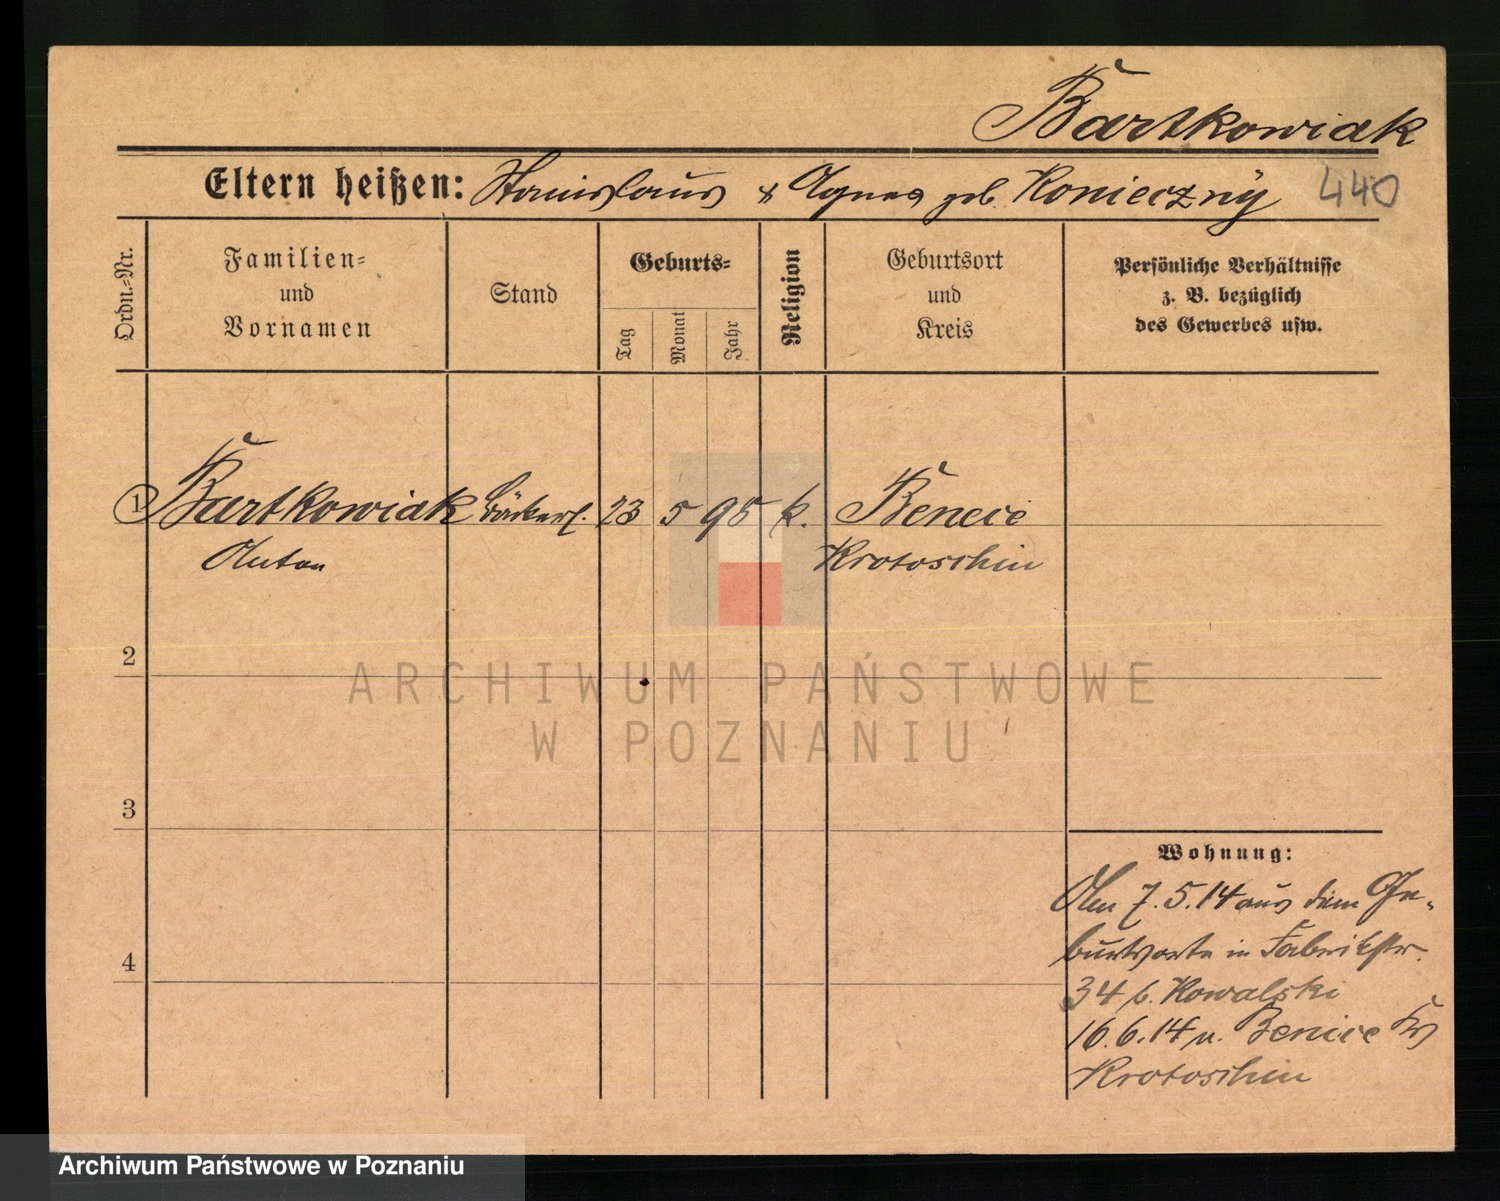 Bartkowiak
Eltern heißen: Stanislaus & Agnes geb. Konieczny
440
Ordn.-Nr.
Familien-
und
Vornamen
Stand
Geburts-
Tag
Monat
Jahr
Religion
Geburtsort
und
Kreis
Persönliche Verhältnisse
z. B. bezüglich
des Gewerbes usw.
1 Bartkowiak Bäckerl. 23 5 95 k. Benice
Anton Krotoschin
2
ARCHIWUM PAŃSTWOWE
W POZNANIU
3
Wohnung:
Am 7.5.14 aus dem Ge-
burtsorte in Fabrikstr.
4
34 b. Kowalski
16.6.14 n. Benice Krs
Krotoschin
Archiwum Państwowe w Poznaniu